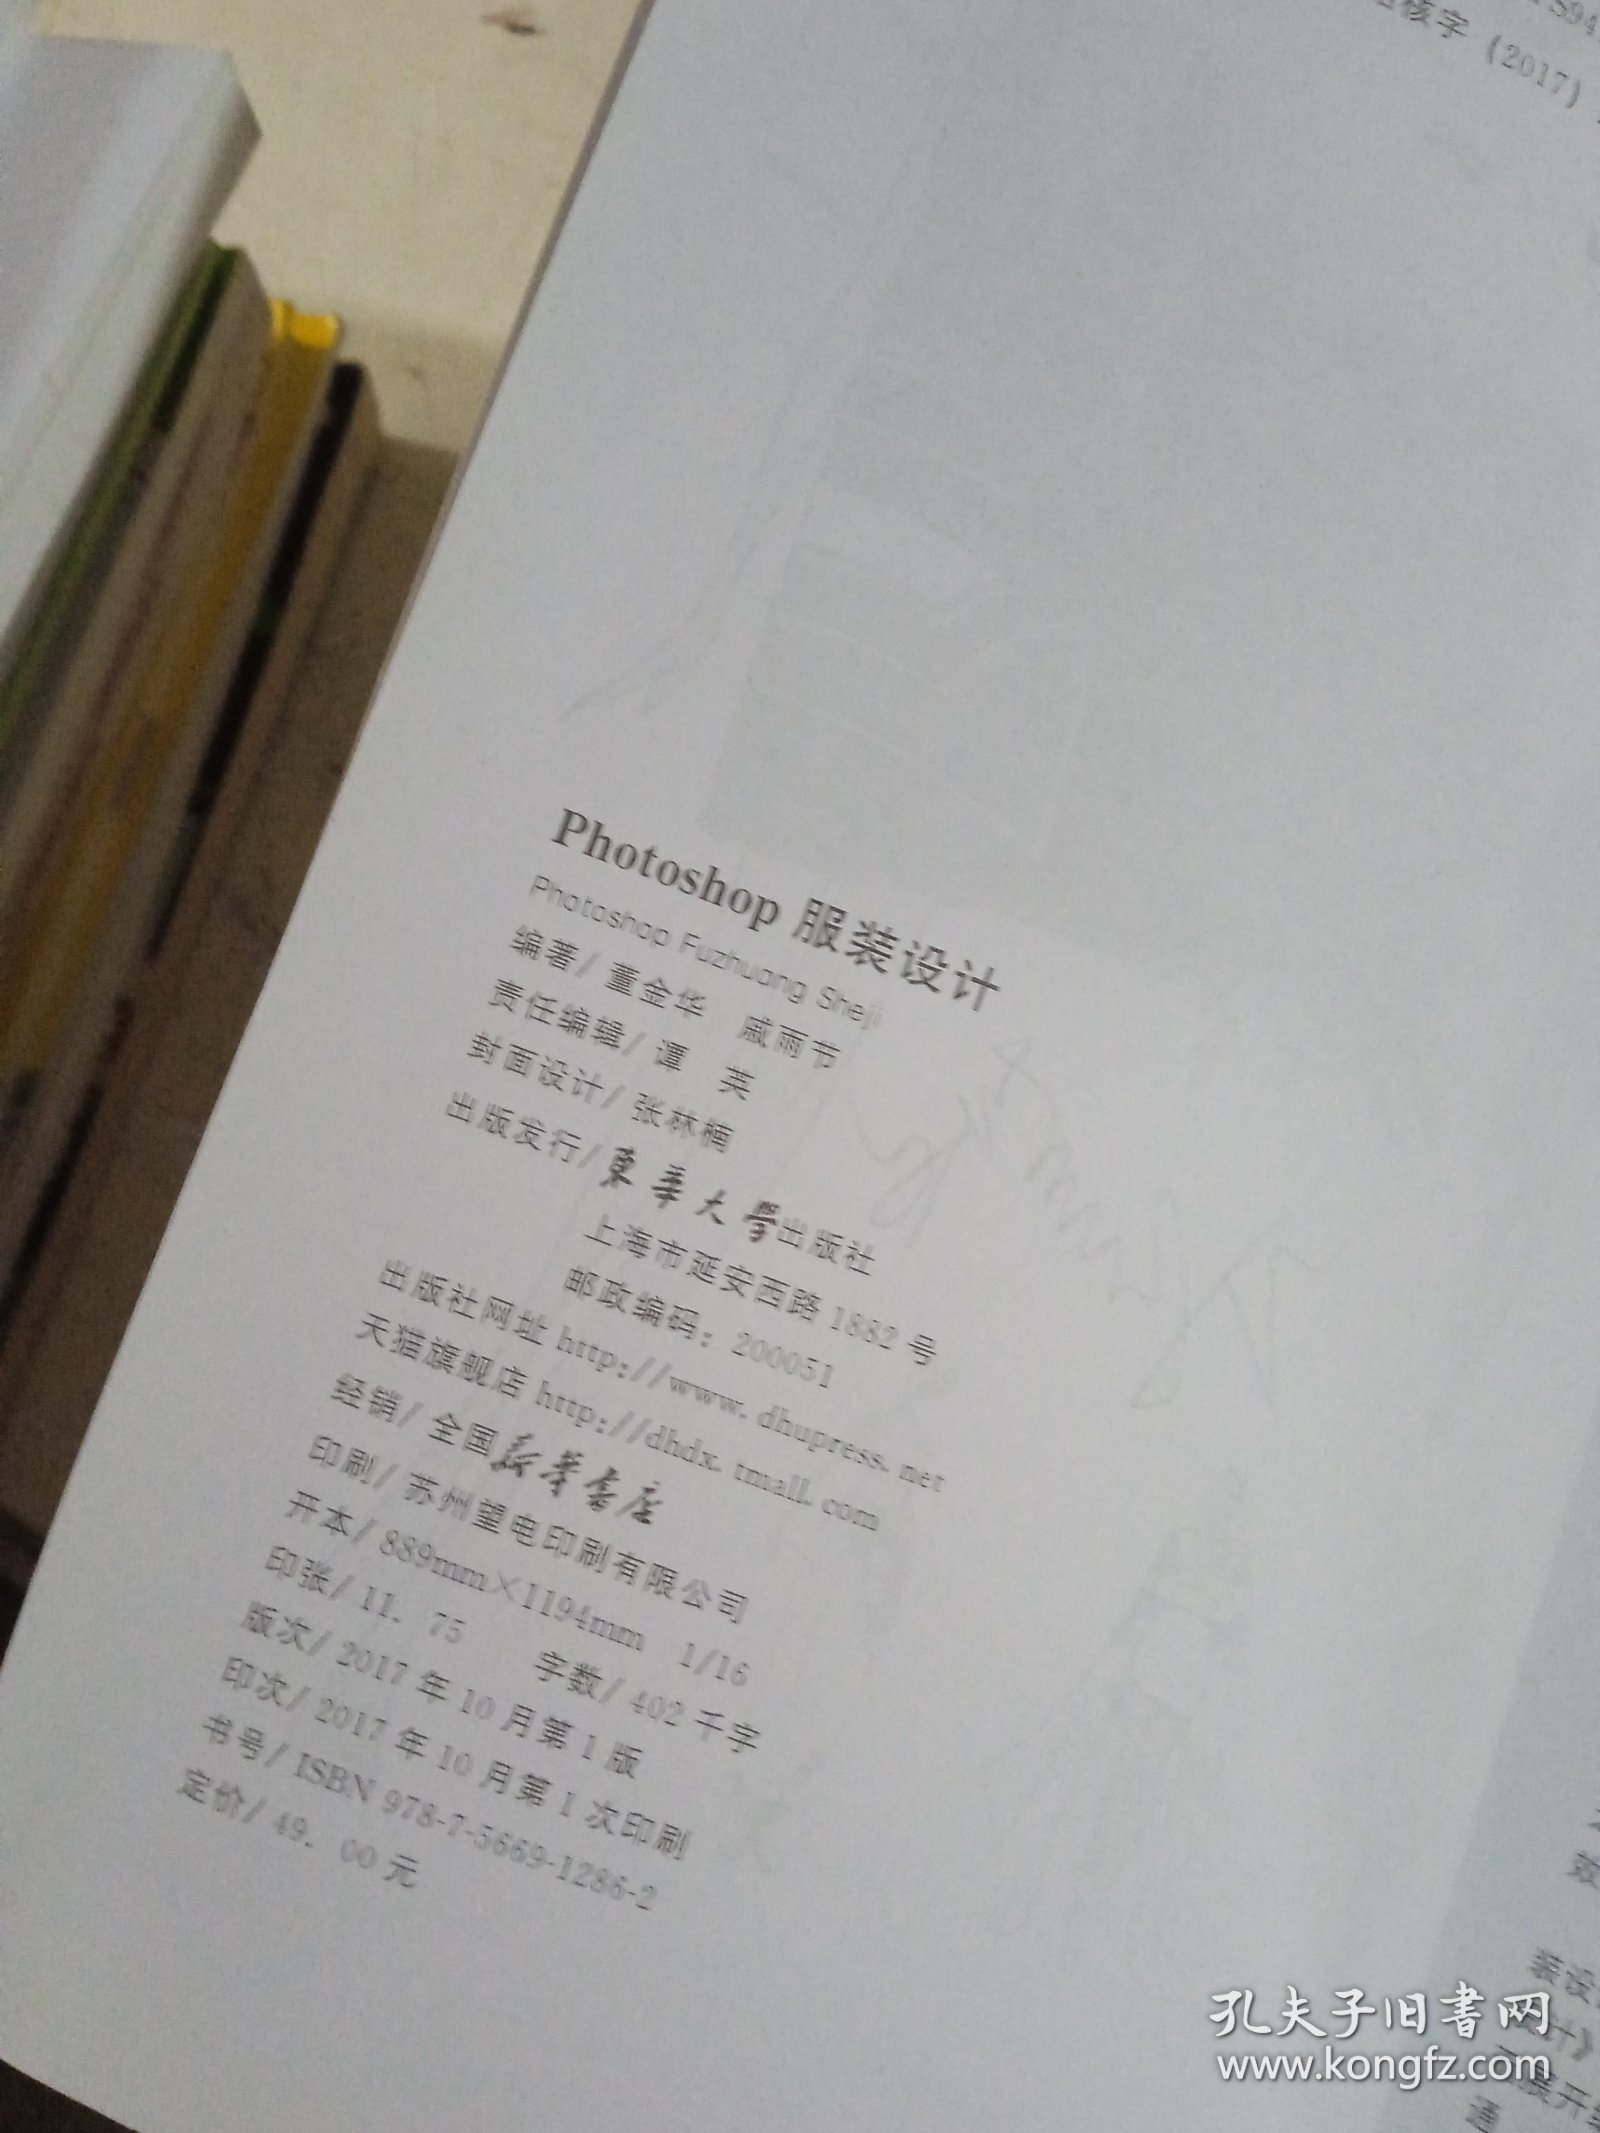 TS94
核字 (2017)
Photoshop 服装设计
Photoshop Fuzhuang Sheji
编著/ 董金华 戚雨节
责任编辑/ 谭 英
封面设计/ 张林楠
出版发行/ 東華大學出版社
上海市延安西路 1882 号
邮政编码：200051
出版社网址 http://www.dhupress.net
天猫旗舰店 http://dhdx.tmall.com
经销/ 全国新华书店
印刷/ 苏州望电印刷有限公司
开本/ 889mm×1194mm 1/16
印张/ 11.75 字数/ 402 千字
版次/ 2017 年 10 月第 1 版
印次/ 2017 年 10 月第 1 次印刷
书号/ ISBN 978-7-5669-1286-2
定价/ 49.00 元
效
装设
计》
展开
通
孔夫子旧书网
www.kongfz.com